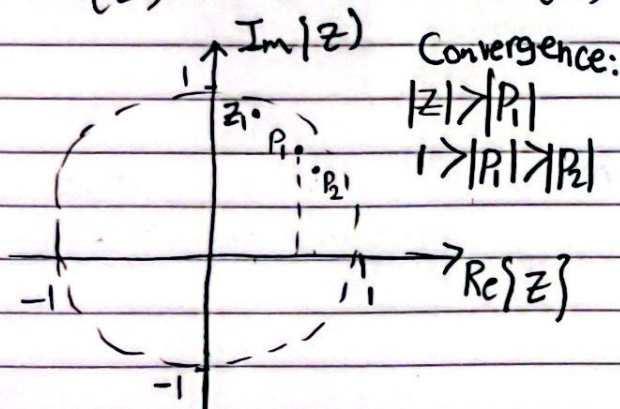 Im{z}
Convergence:
|z|>|P₁|
1>|P₁|>|P₂|
1
z₁
P₁
P₂
Re{z}
-1
1
-1